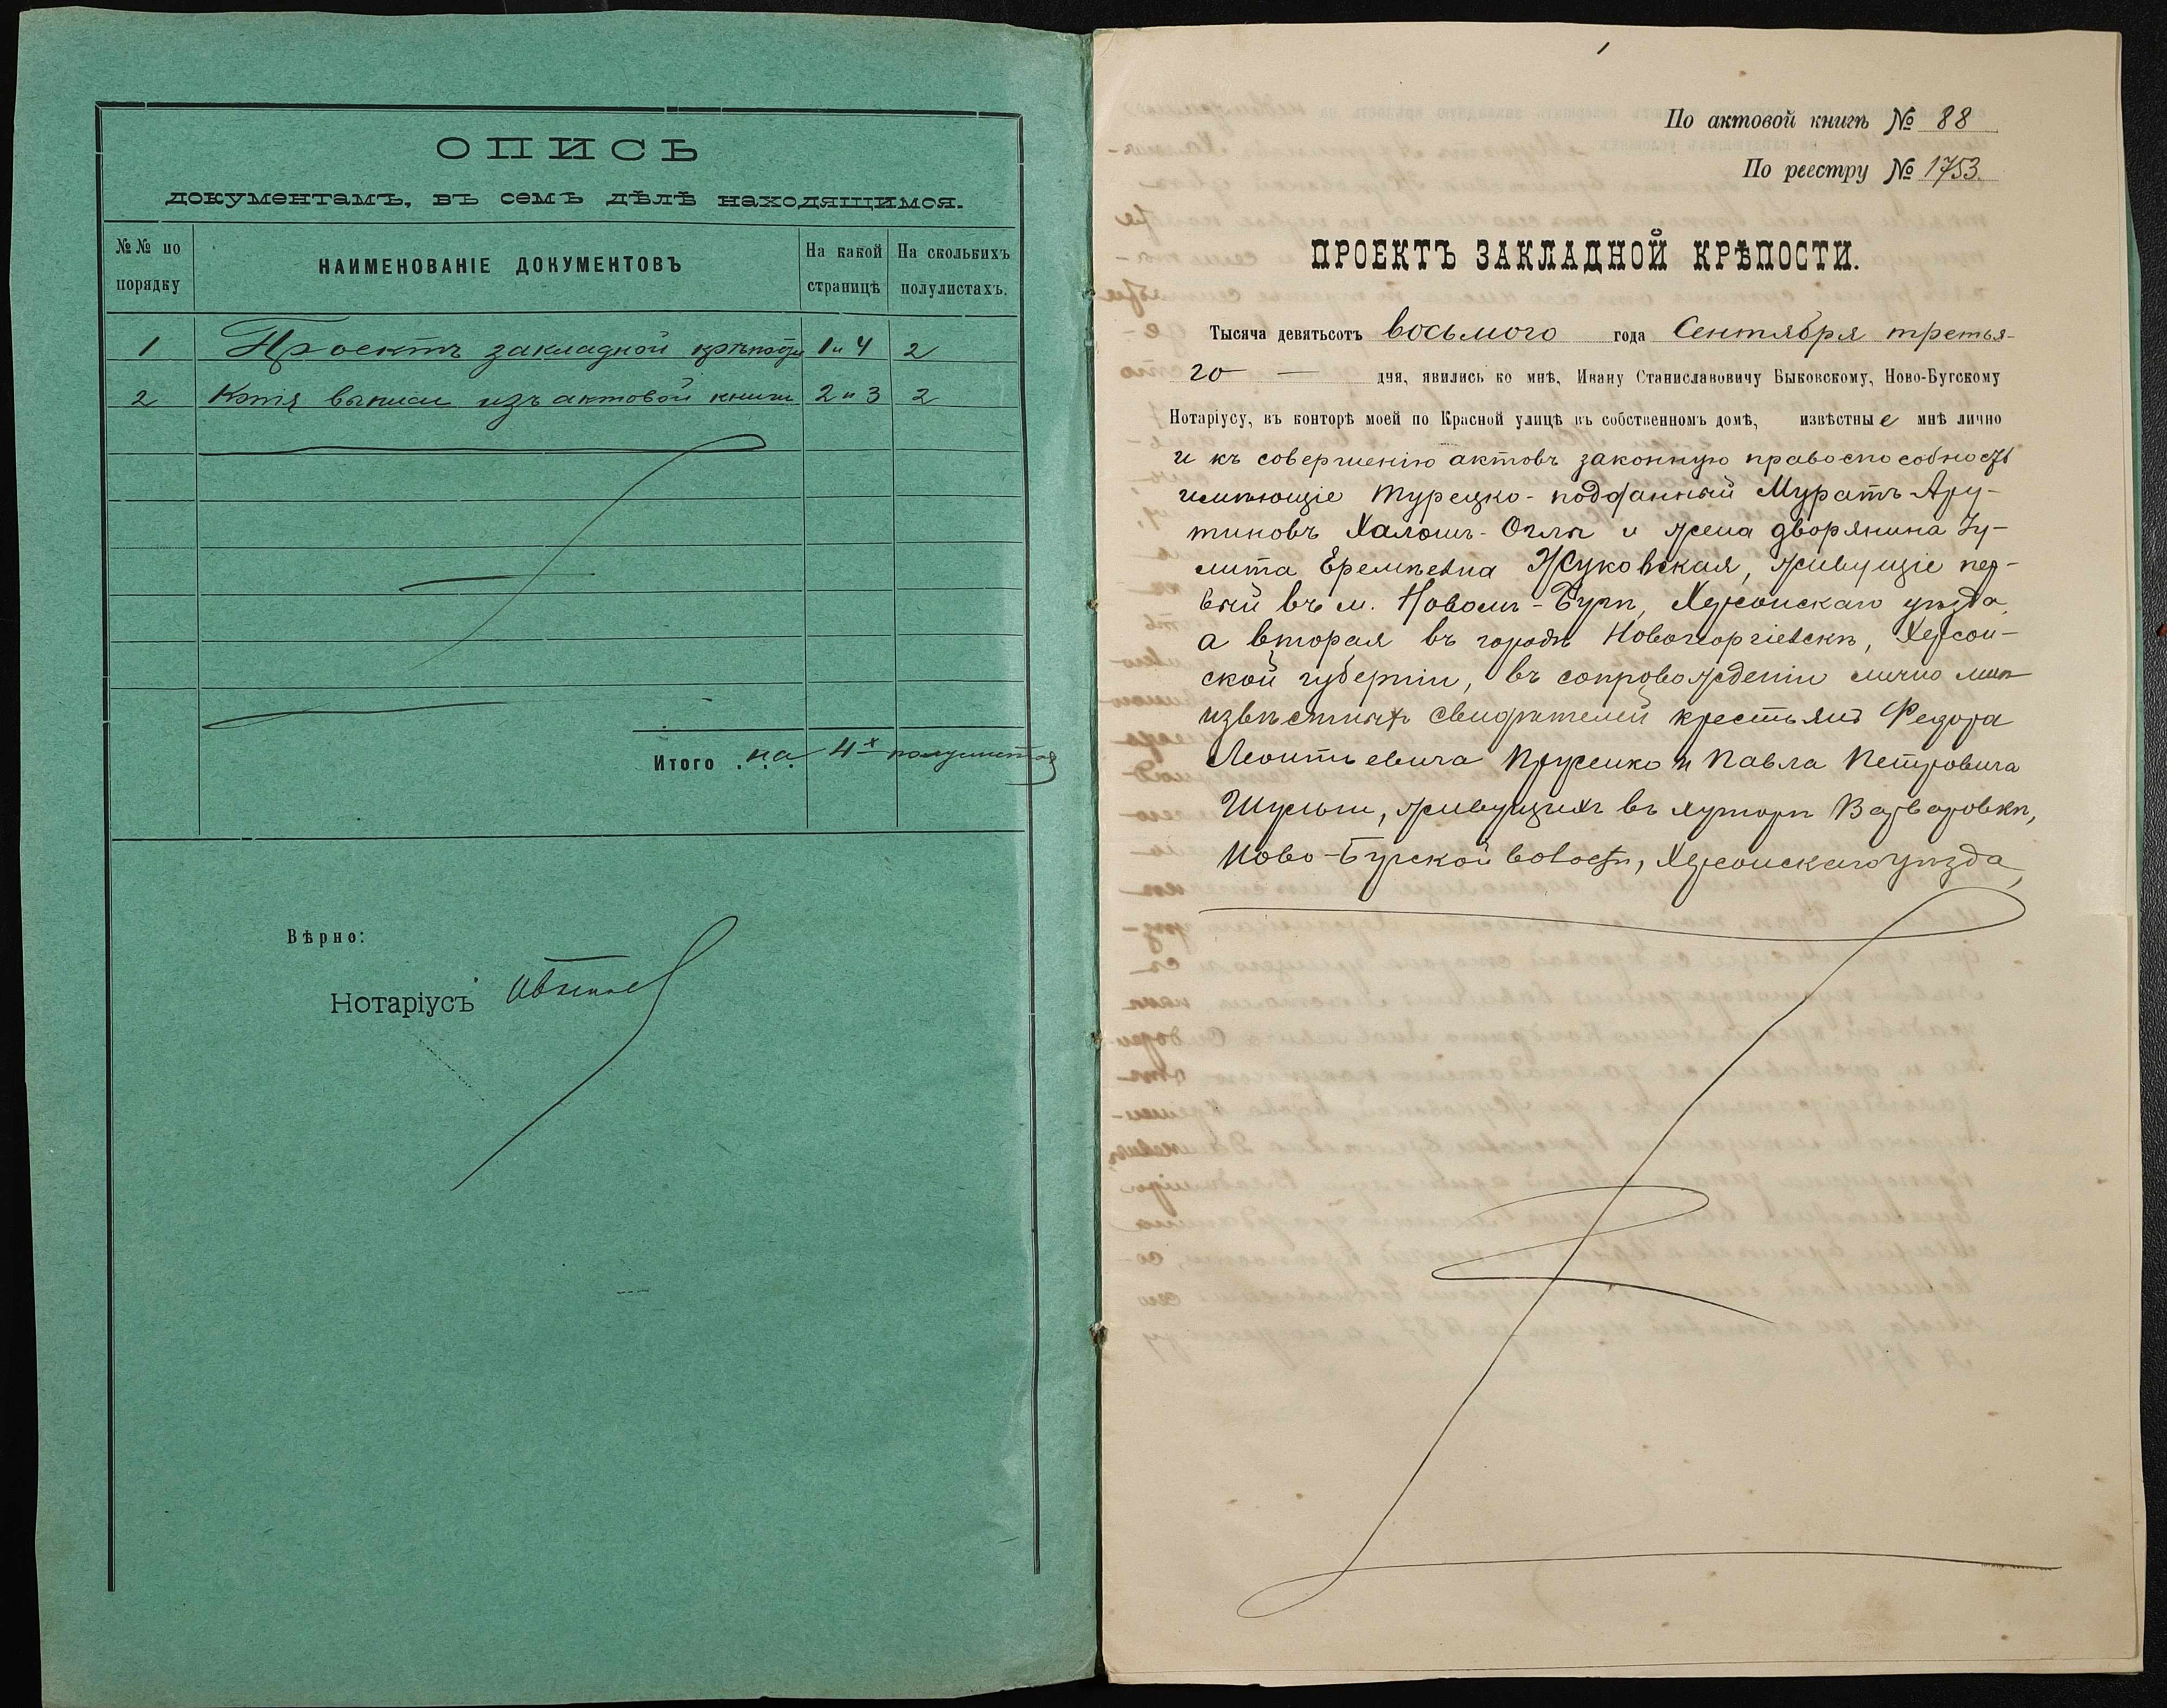 ОПИСЬ
документамъ, въ семъ дѣлѣ находящимся.
№№ по порядку
НАИМЕНОВАНІЕ ДОКУМЕНТОВЪ
На какой страницѣ
На сколькихъ полулистахъ.
1 Проектъ закладной крѣпости 1 и 4 2
2 Копія выписи изъ актовой книги 2 и 3 2
Итого на 4х полулистах
Вѣрно:
Нотаріусъ
1
По актовой книгѣ № 88
По реестру № 1753.
ПРОЕКТЪ ЗАКЛАДНОЙ КРѢПОСТИ.
Тысяча девятьсотъ восьмого года Сентября третья-
го — дня, явились ко мнѣ, Ивану Станиславовичу Быковскому, Ново-Бугскому
Нотаріусу, въ конторѣ моей по Красной улицѣ въ собственномъ домѣ, извѣстные мнѣ лично
и къ совершенію актовъ законную правоспособность
имѣющіе турецко-подданный Муратъ Ару-
тиновъ Халошъ-Оглы и жена дворянина Іу-
лита Еремѣевна Жуковская, живущіе пер-
вый въ м. Новомъ-Бугѣ, Херсонскаго уѣзда,
а вторая въ городѣ Новогеоргіевскѣ, Херсон-
ской губерніи, въ сопровожденіи лично мнѣ
извѣстныхъ свидѣтелей крестьянъ Федора
Леонтьевича Прусенко и Павла Петровича
живущихъ въ хуторѣ Варваровкѣ,
Ново-Бугской волости, Херсонскаго уѣзда,